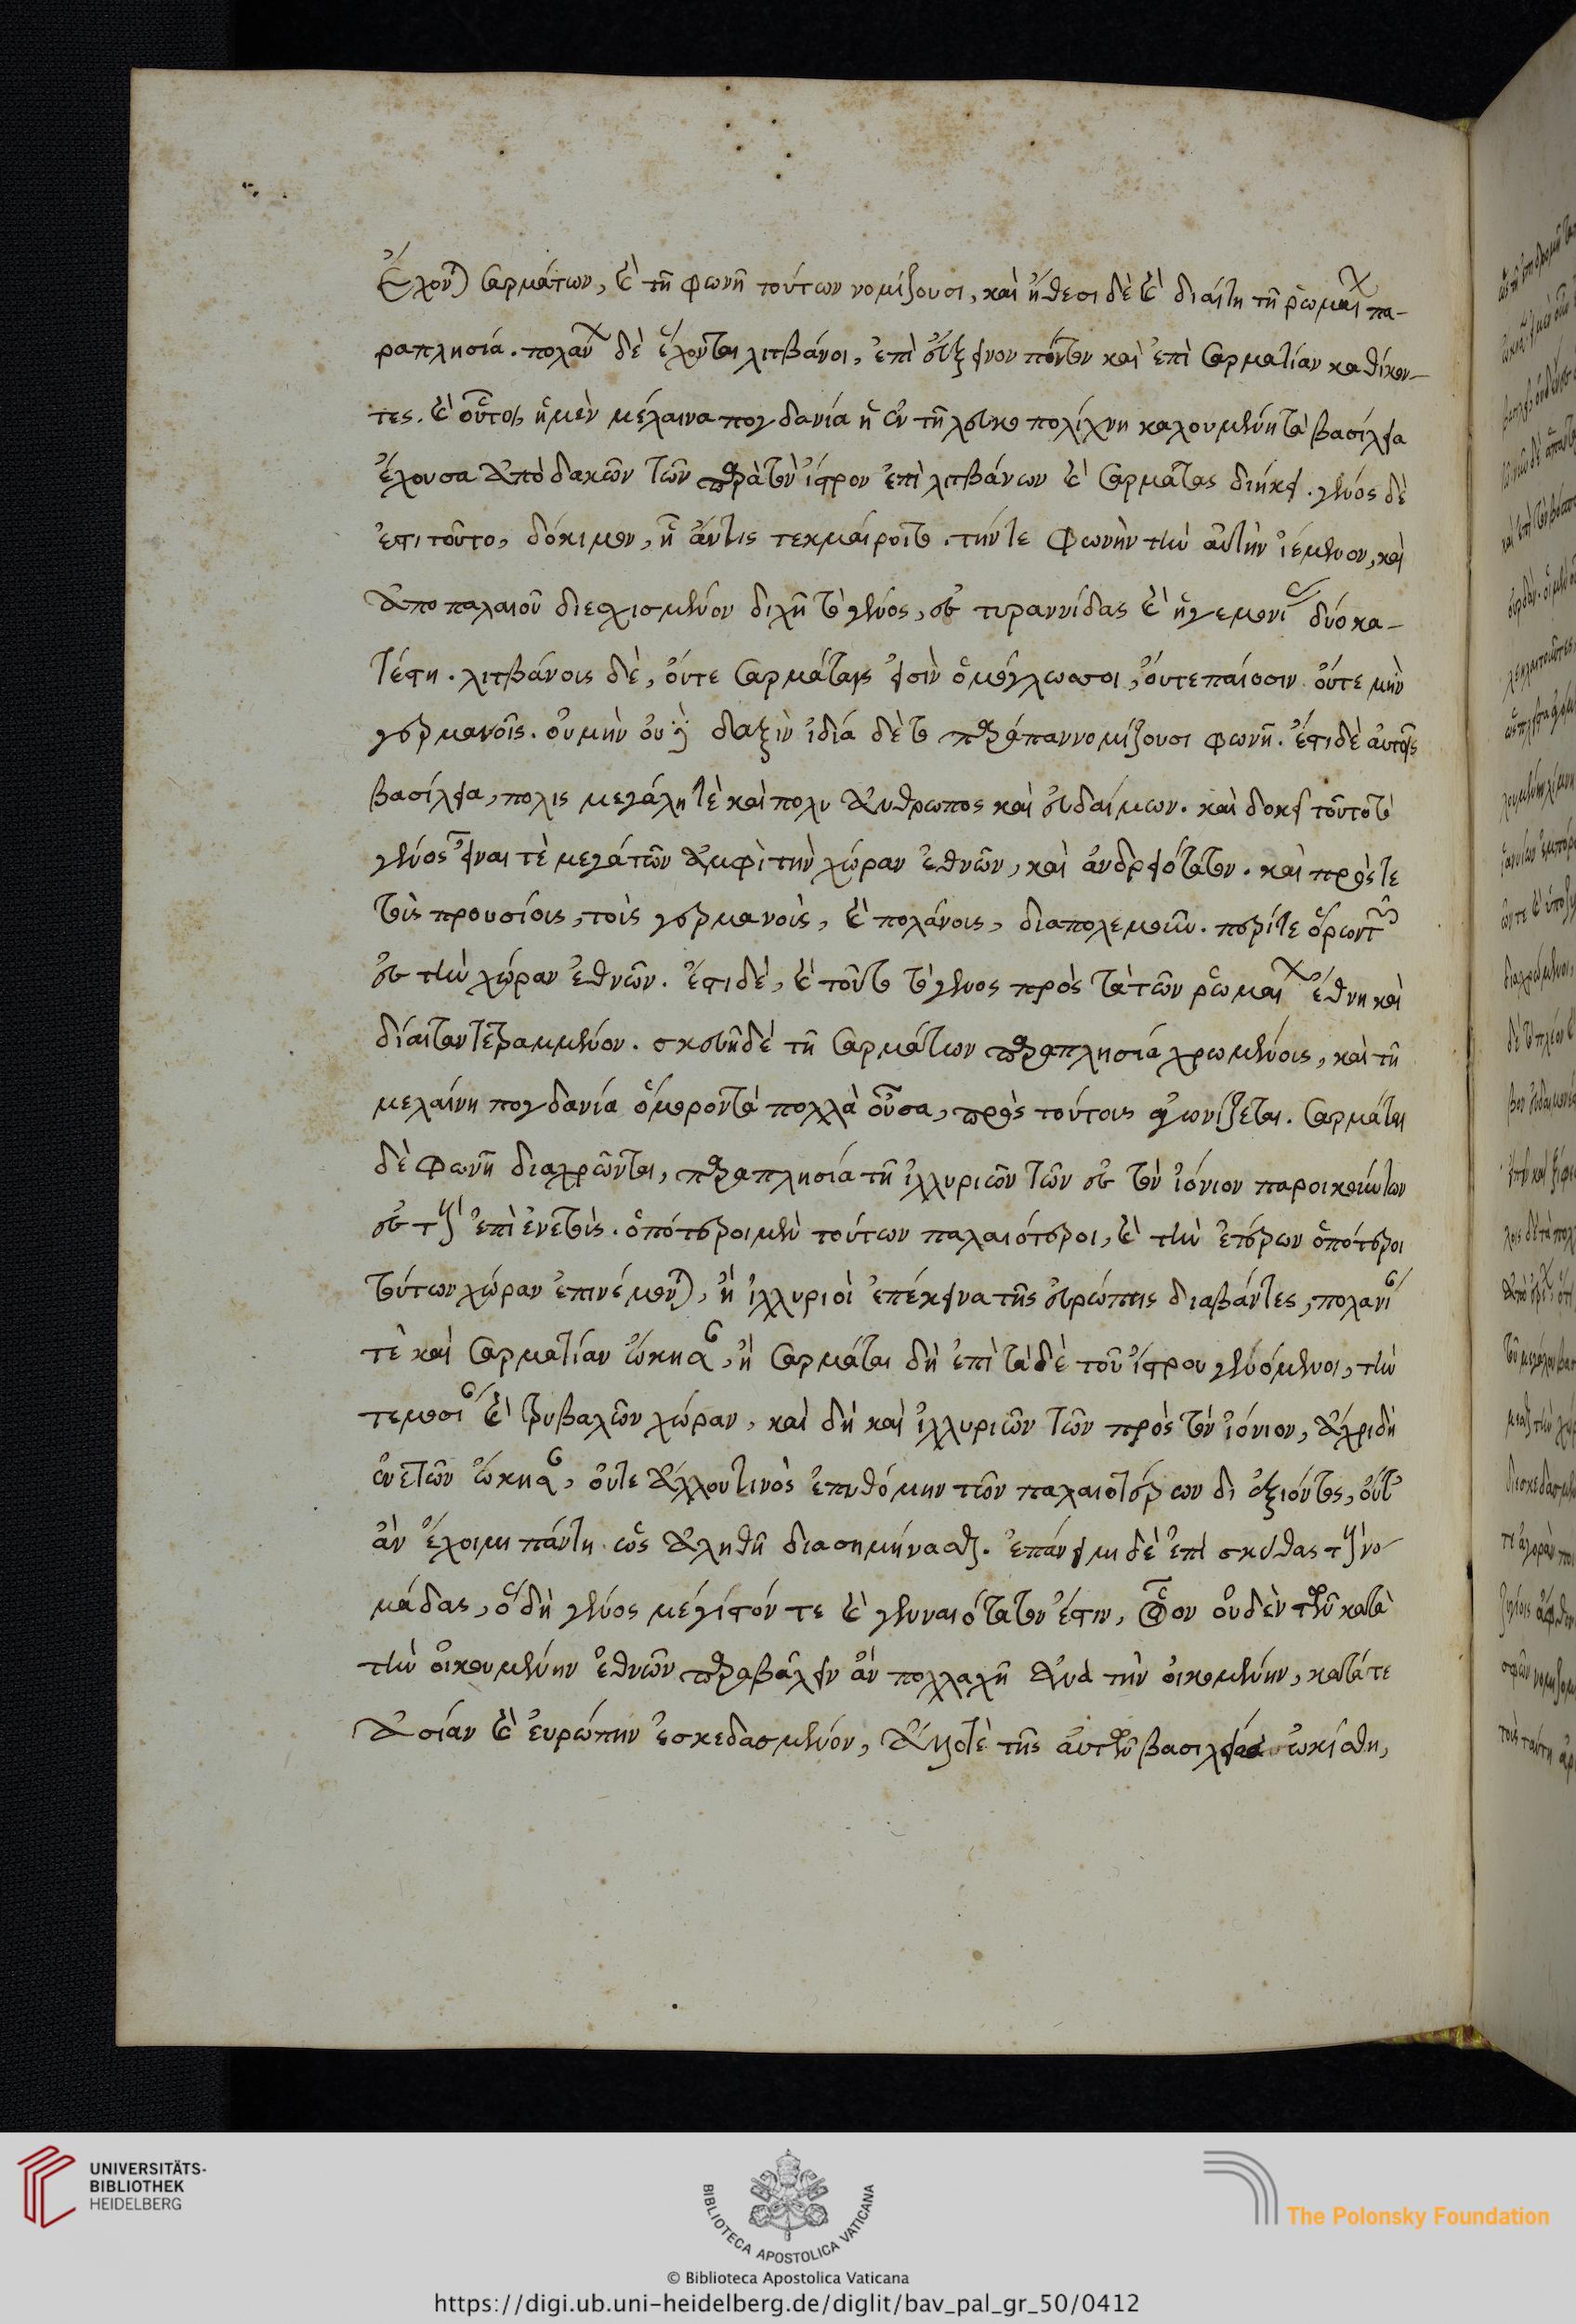 ἔχονται Σαρμάτων, καὶ τῇ φωνῇ τούτων νομίζουσι, καὶ ἤθεσι δὲ καὶ διαίτῃ τῇ ῥωμαίων πα-
ραπλησία. πολάνων δὲ ἔχονται λιτβάνοι, ἐπὶ εὔξεινον πόντον καὶ ἐπὶ Σαρματίαν καθίκον-
τες. καὶ οὗτοι, ἡ μὲν μέλαινα πογδανία ἡ ἐν τῇ λευκο πολίχνη καλουμένη τὰ βασίλεια
ἔχουσα ἀπὸ δακῶν τῶν παρὰ τὸν ἴστρον ἐπὶ λιτβάνων καὶ Σαρμάτας διήκει. γένος δὲ
ἐστι τοῦτο, δόκιμον, ᾗ ἄν τις τεκμαίροιτο. τήν τε φωνὴν τὴν αὐτὴν ἱέμενον, καὶ
ἀπο παλαιοῦ διεσχισμένον διχῇ τὸ γένος, ἐς τυραννίδας καὶ ἡγεμονίας δύο κα-
τέστη. λιτβάνοις δὲ, οὔτε Σαρμάταις εἰσὶν ὁμόγλωσσοι, οὔτε παίοσιν οὔτε μὴν
γερμανοῖς. οὐ μὴν οὐδὲ δαξὶν ἰδία δὲ τὸ παράπαν νομίζουσι φωνῇ. ἔστι δὲ αὐτοῖς
βασίλεια, πολις μεγάλη τὲ καὶ πολυ ἄνθρωπος καὶ εὐδαίμων. καὶ δοκεῖ τοῦτο τὸ
γένος εἶναι τὲ μεγα τῶν ἀμφὶ τὴν χώραν ἐθνῶν, καὶ ἀνδρειότατον. καὶ πρός τε
τοὶς προυσίοις, τοὶς γερμανοὶς, καὶ πολάνοις, διαπολεμοῦν. περί τε ὅρων τῶν
ἐς τὴν χώραν ἐθνῶν. ἔστι δὲ, καὶ τοῦτο τὸ γένος πρὸς τὰ τῶν ῥωμαίων ἔθνη καὶ
δίαιταν τετραμμένον. σκευῇ δὲ τῇ Σαρμάτων παραπλησία χρωμένοις, καὶ τῇ
μελαίνη πογδανία ὅμορον τὰ πολλὰ οὖσα, πρὸς τούτοις ἀγωνίζεται. Σαρμάται
δὲ φωνῇ διαχρῶνται, παραπλησία τῇ ἰλλυριῶν τῶν ἐς τὸν ἰόνιον παροικούντων
ἐς τοὺς ἐπὶ ἐνετοὶς. ὁπότεροι μὲν τούτων παλαιότεροι, καὶ τὴν ἑτέρων ὁπότεροι
τούτων χώραν ἐπινέμονται, ἢ ἰλλυριοὶ ἐπέκεινα τῆς εὐρώπης διαβάντες, πολανίαν
τὲ καὶ Σαρματίαν ᾤκησαν, ἢ Σαρμάται δὴ ἐπὶ τὰδὲ τοῦ ἴστρου γενόμενοι, τήν
τε μυσίαν καὶ τριβαλῶν χώραν, καὶ δὴ καὶ ἰλλυριῶν τῶν πρὸς τὸν ἰόνιον, ἄχρι δὴ
ἐνετῶν ᾤκησαν, οὔτε ἄλλου τινὸς ἐπυθόμην τῶν παλαιοτέρων διεξιόντος, οὔτ'
ἂν ἔχοιμι πάντη ὡς ἀληθῆ διασημήνασθαι. ἐπάνειμι δὲ ἐπὶ σκύθας τοὺς νο-
μάδας, ὃ δὴ γένος μέγιστόν τε καὶ γενναιότατόν ἐστιν, οἷον οὐδὲν τῶν κατὰ
τὴν οἰκουμένην ἐθνῶν παραβάλειν ἂν πολλαχῇ ἀνὰ τὴν οἰκουμένην, κατά τε
Ἀσίαν καὶ εὐρώπην ἐσκεδασμένον, ἄλλοτὲ τῆς αὐτῶν βασιλείας ᾠκίσθη,
UNIVERSITÄTS-
BIBLIOTHEK
HEIDELBERG
BIBLIOTECA APOSTOLICA VATICANA
The Polonsky Foundation
© Biblioteca Apostolica Vaticana
https://digi.ub.uni-heidelberg.de/diglit/bav_pal_gr_50/0412